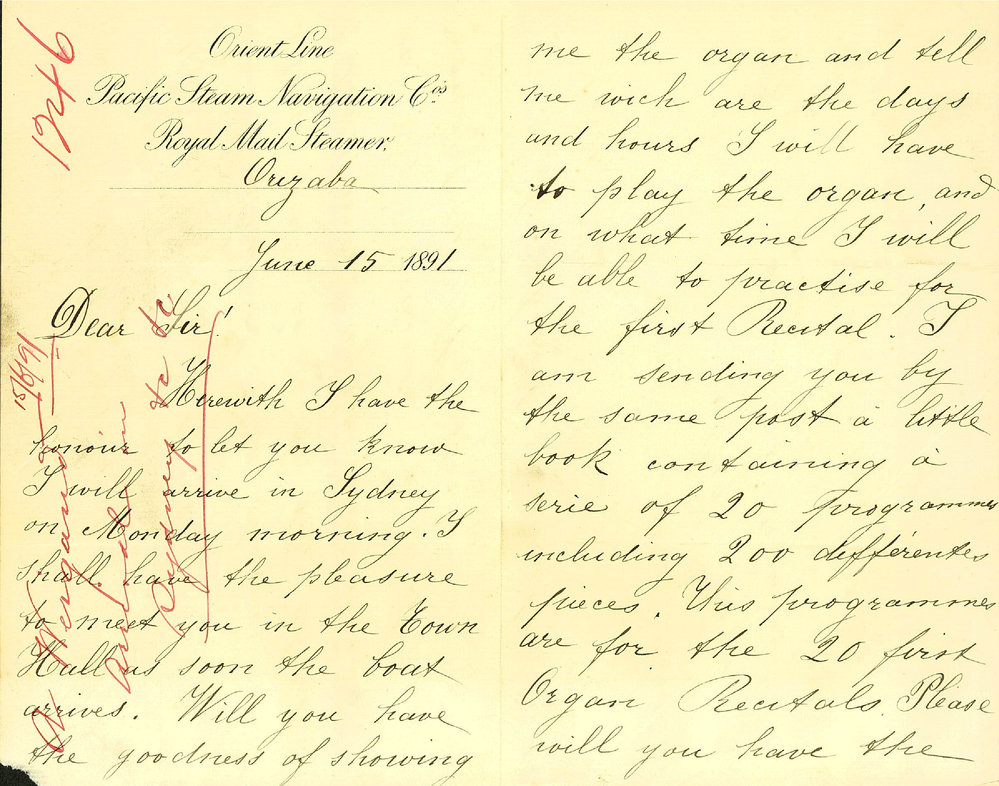 1246
Orient Line
Pacific Steam Navigation Co's
Royal Mail Steamer.
Orizaba
June 15 1891
Dear Sir!
Herewith I have the
honour to let you know
I will arrive in Sydney
on Monday morning. I
shall have the pleasure
to meet you in the Town
Hall as soon the boat
arrives. Will you have
the goodness of showing
A Wiegand 15/6/91
Arrival in
Sydney &c &c
me the organ and tell
me wich are the days
and hours I will have
to play the organ, and
on what time I will
be able to practise for
the first Recital. I
am sending you by
the same post a little
book containing a
serie of 20 programmes
including 200 différentes
pieces. This programmes
are for the 20 first
Organ Recitals. Please
will you have the